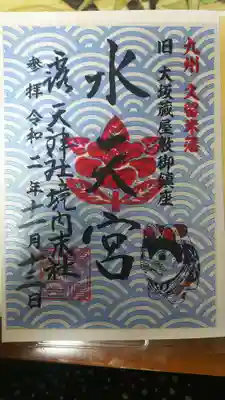 九州 久留米藩
旧 大坂蔵屋敷御鎮座
水天宮
露 天神社境内末社
参拝 令和二年十一月十二日